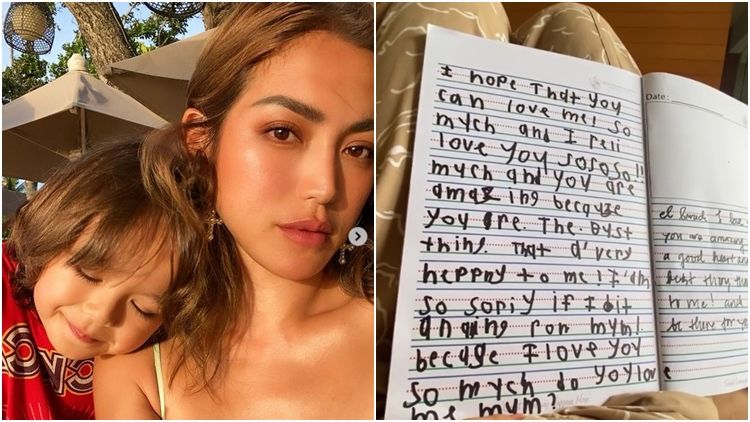 I hope That yoy
can love me! So
mych and I reli
love yoy sososo!!
mych and yoy are
amazing becayse
yoy are. The. Byst
thing. That d'very
heppny to me! I'am
so soriy if I dit
anging ron mym!
becaye I love yoy
so mych do yoy love
me mym?
Date:
I love
you are amazing
a good heart and
best thing
to me! and
be there for